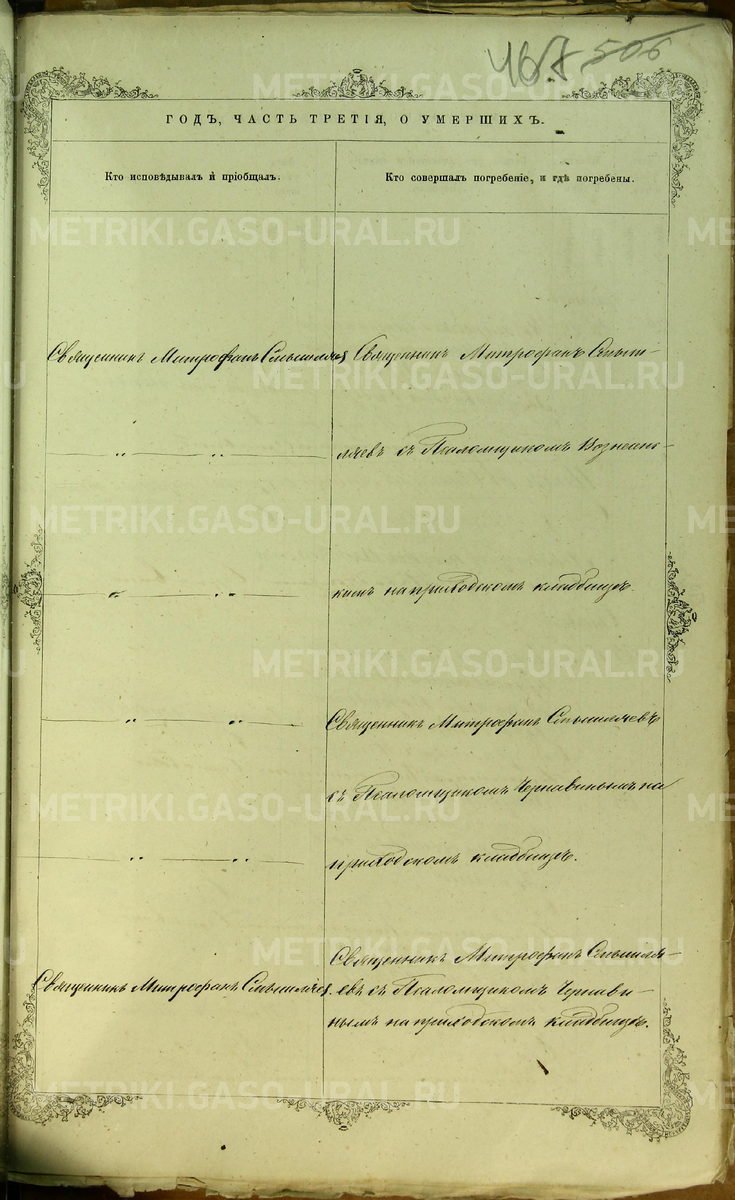 467 506
ГОДЪ, ЧАСТЬ ТРЕТІЯ, О УМЕРШИХЪ.
Кто исповѣдывалъ и пріобщалъ.
Кто совершалъ погребеніе, и гдѣ погребены.
Священникъ Митрофанъ
Священникъ Митрофанъ
съ Псаломщикомъ Вознесенс-
кимъ на приходскомъ кладбищѣ.
Священникъ Митрофанъ
съ Псаломщикомъ Чернавинымъ на
приходскомъ кладбищѣ.
Священникъ Митрофанъ
Священникъ Митрофанъ
съ Псаломщикомъ Чернави-
нымъ на приходскомъ кладбищѣ.
METRIKI.GASO-URAL.RU